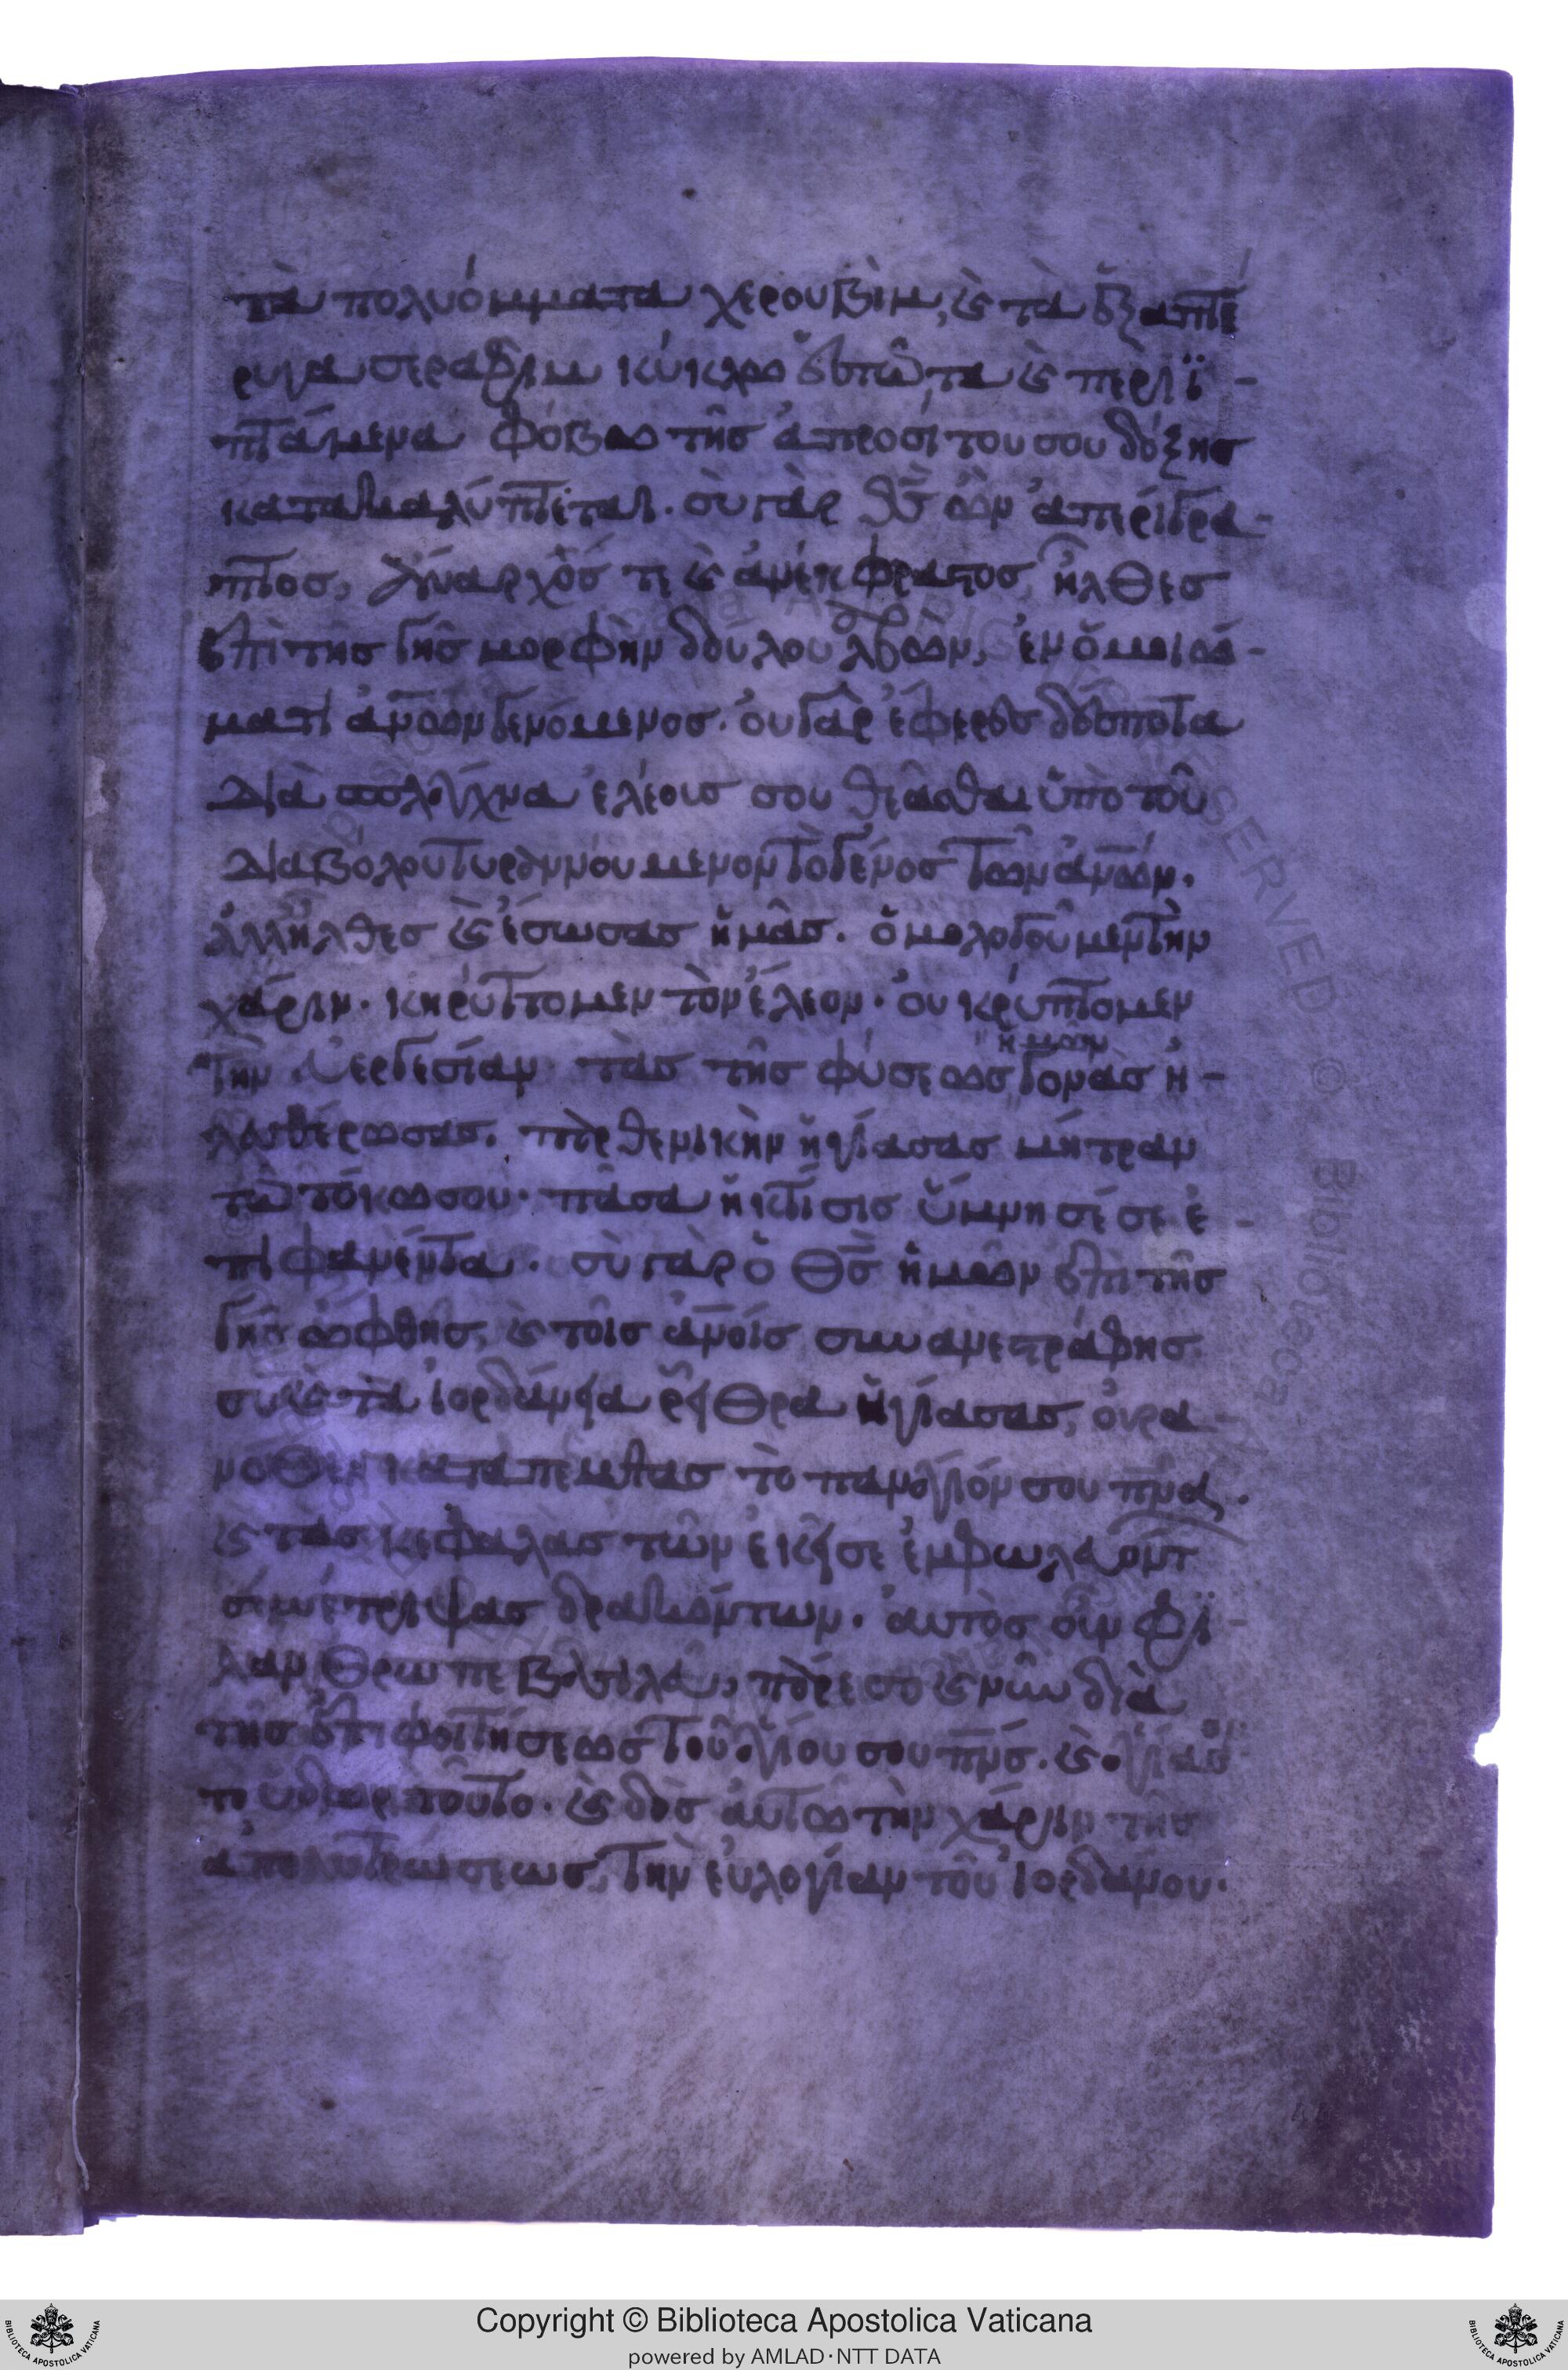 τὰ πολυόμματα χερουβὶμ, καὶ τὰ ἑξαπτε
ρυγα σεραφὶμ κύκλω ἑστῶτα καὶ περιϊ-
πτάμενα φόβω τῆς ἀπροσίτου σου δόξης
κατακαλύπτεται. σὺ γὰρ θς ὢν ἀπερίγρα-
πτος, ἄναρχός τε καὶ ἀνέκφραστος, ἦλθες
ἐπὶ τῆς γῆς μορφὴν δούλου λαβὼν, ἐν ὁμοιώ-
ματι ἀνων γενόμενος. οὐ γὰρ ἔφερες δέσποτα
διὰ σπλάγχνα ἐλέους σου θεᾶσθαι ὑπὸ τοῦ
διαβόλου τυραννούμενον τὸ γένος τῶν ἀνων.
ἀλλ' ἦλθες καὶ ἔσωσας ἡμᾶς. ὁμολογοῦμεν τὴν
χάριν. κηρύττομεν τὸν ἔλεον. οὐ κρύπτομεν
τὴν εὐεργεσίαν τὰς τῆς φύσεως ἡμῶν γονὰς ἠ-
λευθέρωσας. παρθενικὴν ἡγίασας μήτραν
τῶ τόκω σου. πᾶσα ἡ κτίσις ὕμνησέ σε ἐ-
πιφανέντα. σὺ γὰρ ὁ θς ἡμῶν ἐπὶ τῆς
γῆς ὤφθης, καὶ τοῖς ἀνοις συνανετράφης.
σὺ καὶ τὰ ἰορδάνεια ῥεῖθρα ἡγίασας, οὐρα-
νόθεν καταπέμψας τὸ πανάγιόν σου πνα.
καὶ τὰς κεφαλὰς τῶν ἐκεῖσε ἐμφωλευόντ
συνέτριψας δρακόντων. αὐτὸς οὖν φι-
λάνθρωπε βασιλεῦ, πάρεσο καὶ νῦν διὰ
τῆς ἐπιφοιτήσεως τοῦ ἁγίου σου πνς. καὶ ἁγίασον
τὸ ὕδωρ τοῦτο. καὶ δὸς αὐτῶ τὴν χάριν τῆς
ἀπολυτρώσεως, τὴν εὐλογίαν τοῦ ἰορδάνου.
Copyright © Biblioteca Apostolica Vaticana
powered by AMLAD·NTT DATA